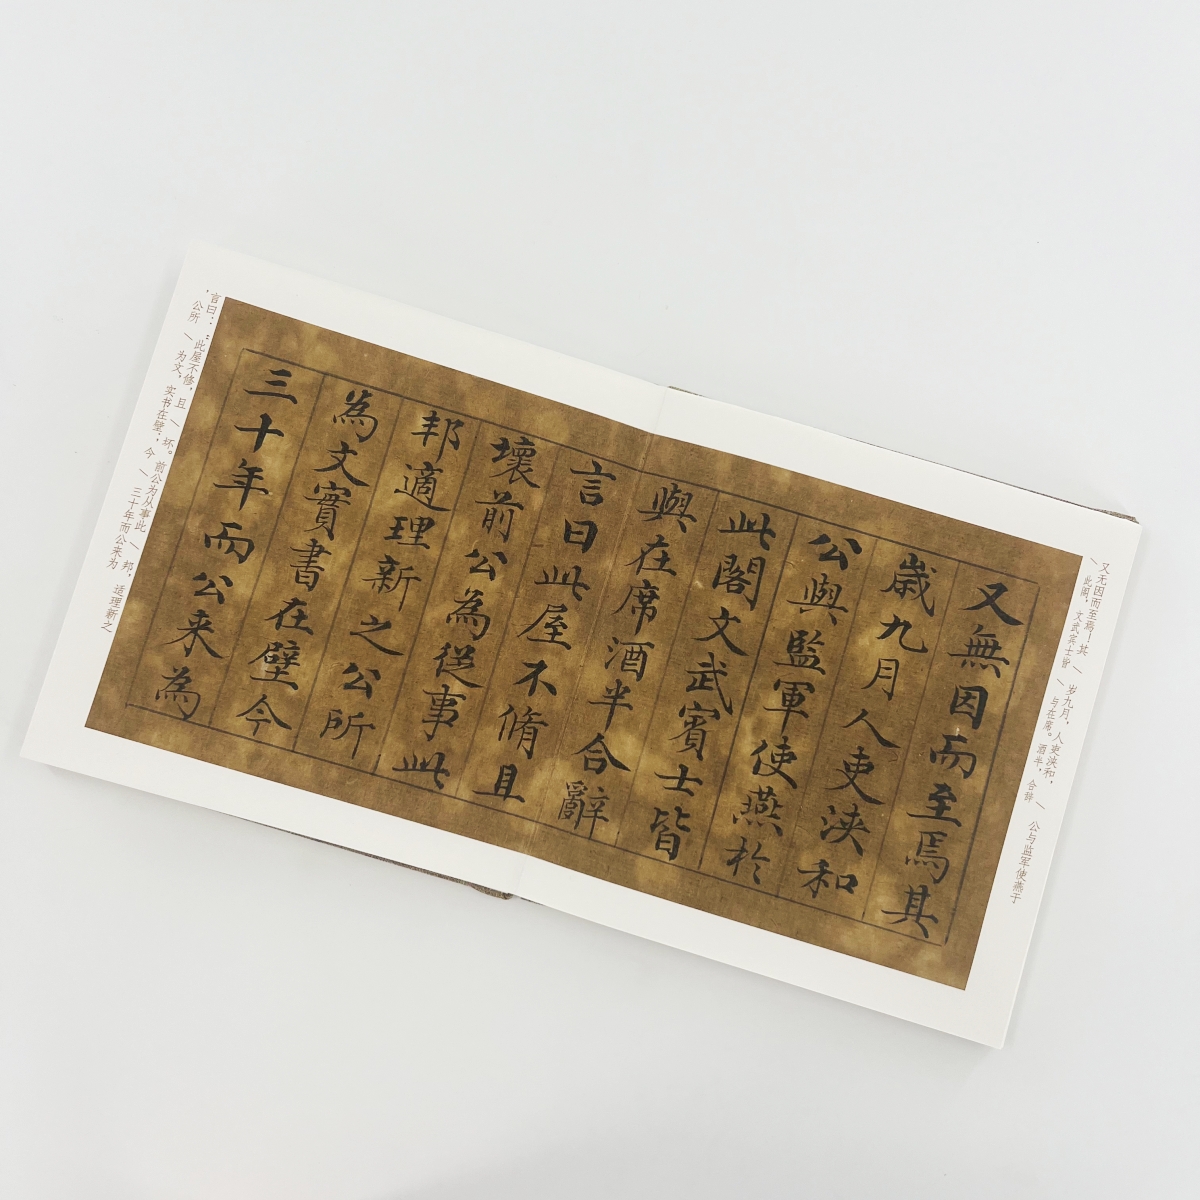 又无因而至焉！其 \ 岁九月，人吏浃和， \ 公与监军使燕于
此阁，文武宾士皆 \ 与在席。酒半，合辞
又無因而至焉其
歲九月人吏浹和
公與監軍使燕於
此閣文武賓士皆
與在席酒半合辭
言曰此屋不脩且
壞前公為從事此
邦適理新之公所
為文實書在壁今
三十年而公来為
言曰：：此屋不修，且 \ 坏。前公为从事此 \ 邦，适理新之
，公所 \ 为文，实书在壁；今 \ 三十年而公来为